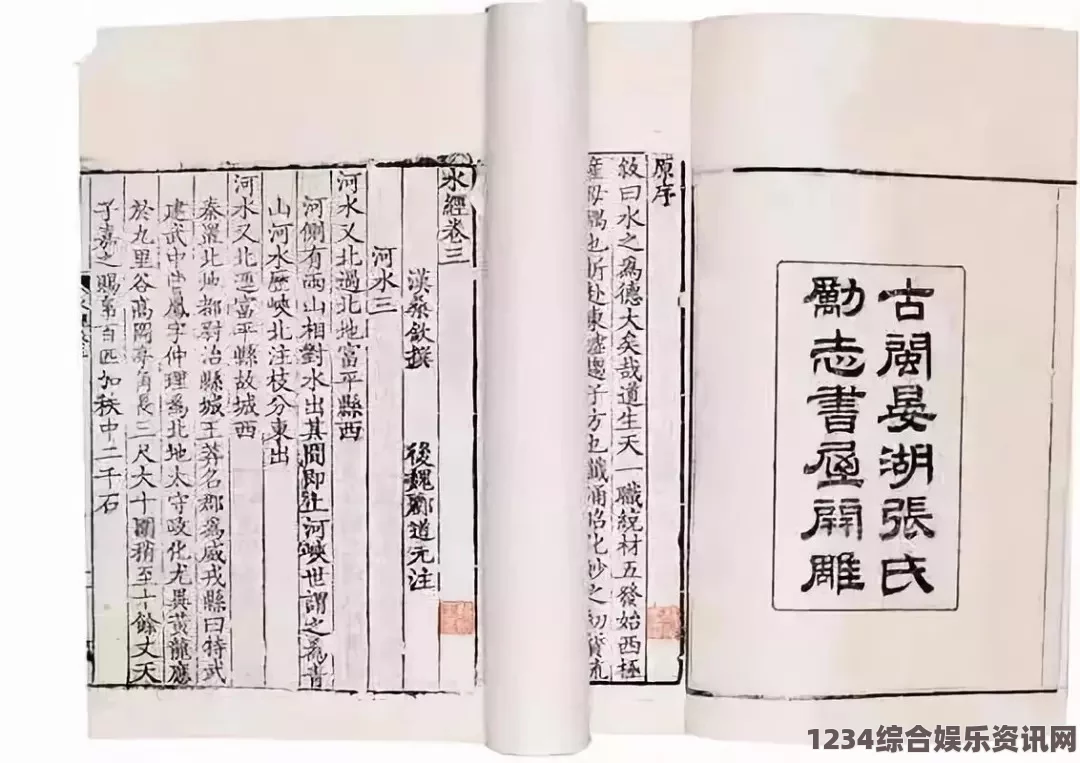 古閩晏湖張氏
勵志書屋開雕
原序
敘曰水之爲德大矣哉道生天一職統材五發始西極
母 也 赴東墟 子方也 化妙之初 流
水經卷三
漢桑欽撰 後魏酈道元注
河水三
河水又北過北地富平縣西
河側有兩山相對水出其間即上河峽世謂之爲青
山河水歷峽北注枝分東出
河水又北逕富平縣故城西
秦置北地郡對治縣城王莽名郡爲威戎縣曰特武
建武中曹鳳字仲理爲北地太守政化尤異黃龍應
於九里谷高岡亭角長三尺大十圍稍至十餘丈天
子嘉之賜帛百匹加秩中二千石
1234综合娱乐资讯网